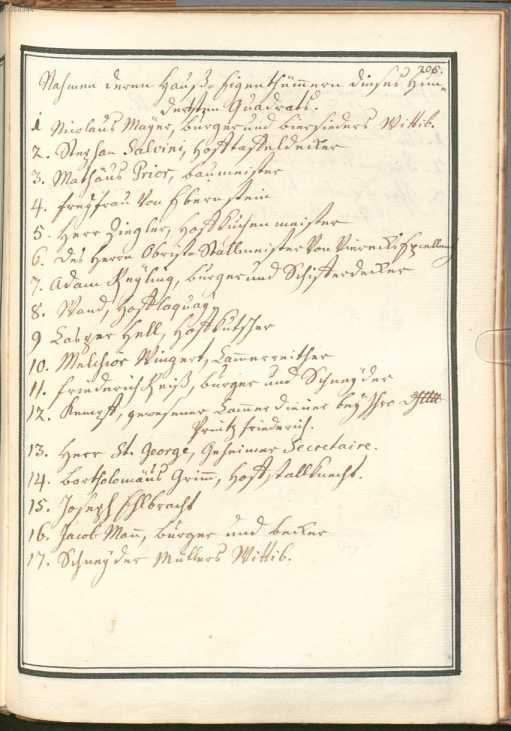 206.
Nahmen deren Hauß-Eigenthümmern dieses
Quadrats.
1 Nicolaus Mayer, burger und biersieders Wittib.
2. Stephan Salvini, Hofftaffeldecker
3. Mathäus Prior, baumeister
4. freyfrau von Ebernstein
5. Herr Ziegler, Hoffkuchenmeister
6. des Herrn Obrist-Stallmeister von Vierecks Excellenz
7. Adam Reyling, burger und Schifferdecker
8. Wand, Hofflaquay
9 Casper Hell, Hoffkutscher
10. Melchior Wingert, Cammerreither
11. friederich Reiß, burger und Schneyder
12. Kempff, gewesener Cammerdiener bey Ihro
Printz friederich.
13. Herr St. George, Geheimer Secretaire.
14. Bartholomäus Grim̄, Hoffstallknecht.
15. Joseph Ehlbracht
16. Jacob Man̄, burger und becker
17. Schneyder Müllers Wittib.